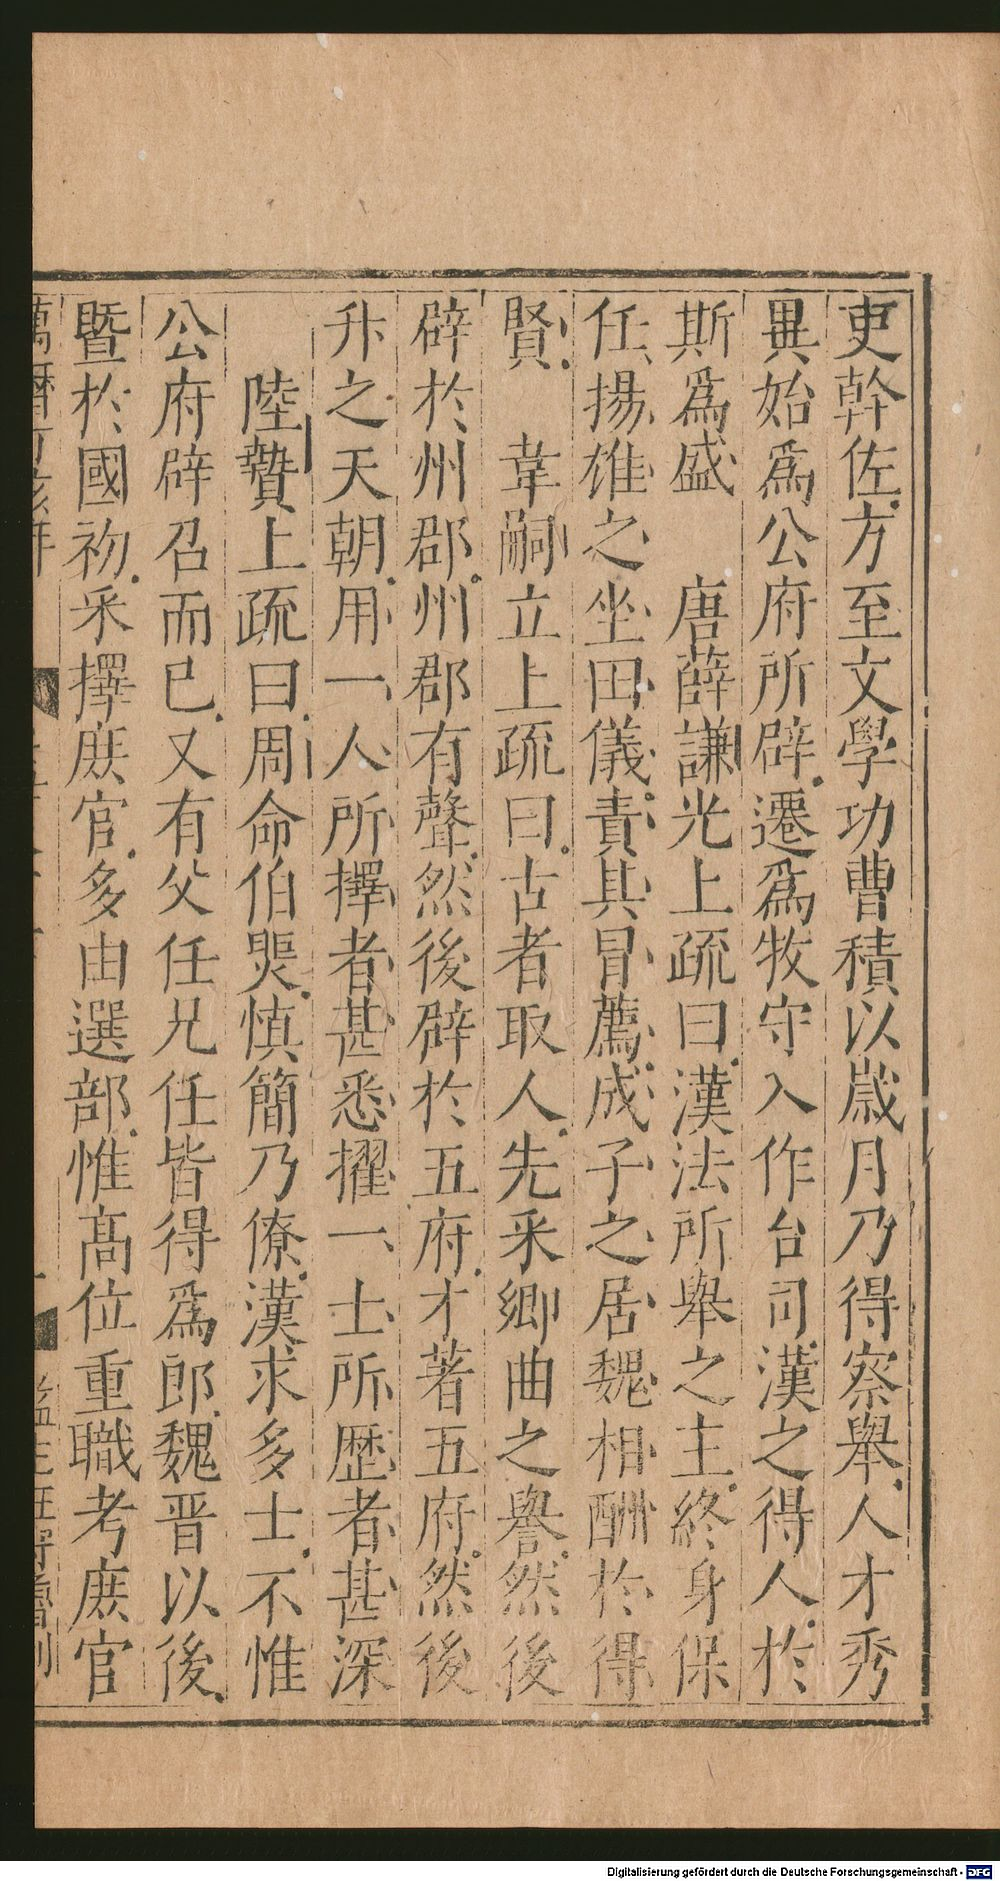 吏幹佐方至文學功曹積以歳月乃得察舉人才秀
異始爲公府所辟遷爲牧守入作台司漢之得人於
斯爲盛　唐薛謙光上疏曰漢法所舉之主終身保
任揚雄之坐田儀責其冒薦成子之居魏相酬於得
賢　韋嗣立上疏曰古者取人先采鄉曲之譽然後
辟於州郡州郡有聲然後辟於五府才著五府然後
升之天朝用一人所擇者甚悉擢一士所歷者甚深
陸贄上疏曰周命伯冏慎簡乃僚漢求多士不惟
公府辟召而已又有父任兄任皆得爲郎魏晋以後
暨於國初采擇庶官多由選部惟高位重職考庶官
萬曆
Digitalisierung gefördert durch die Deutsche Forschungsgemeinschaft - DFG